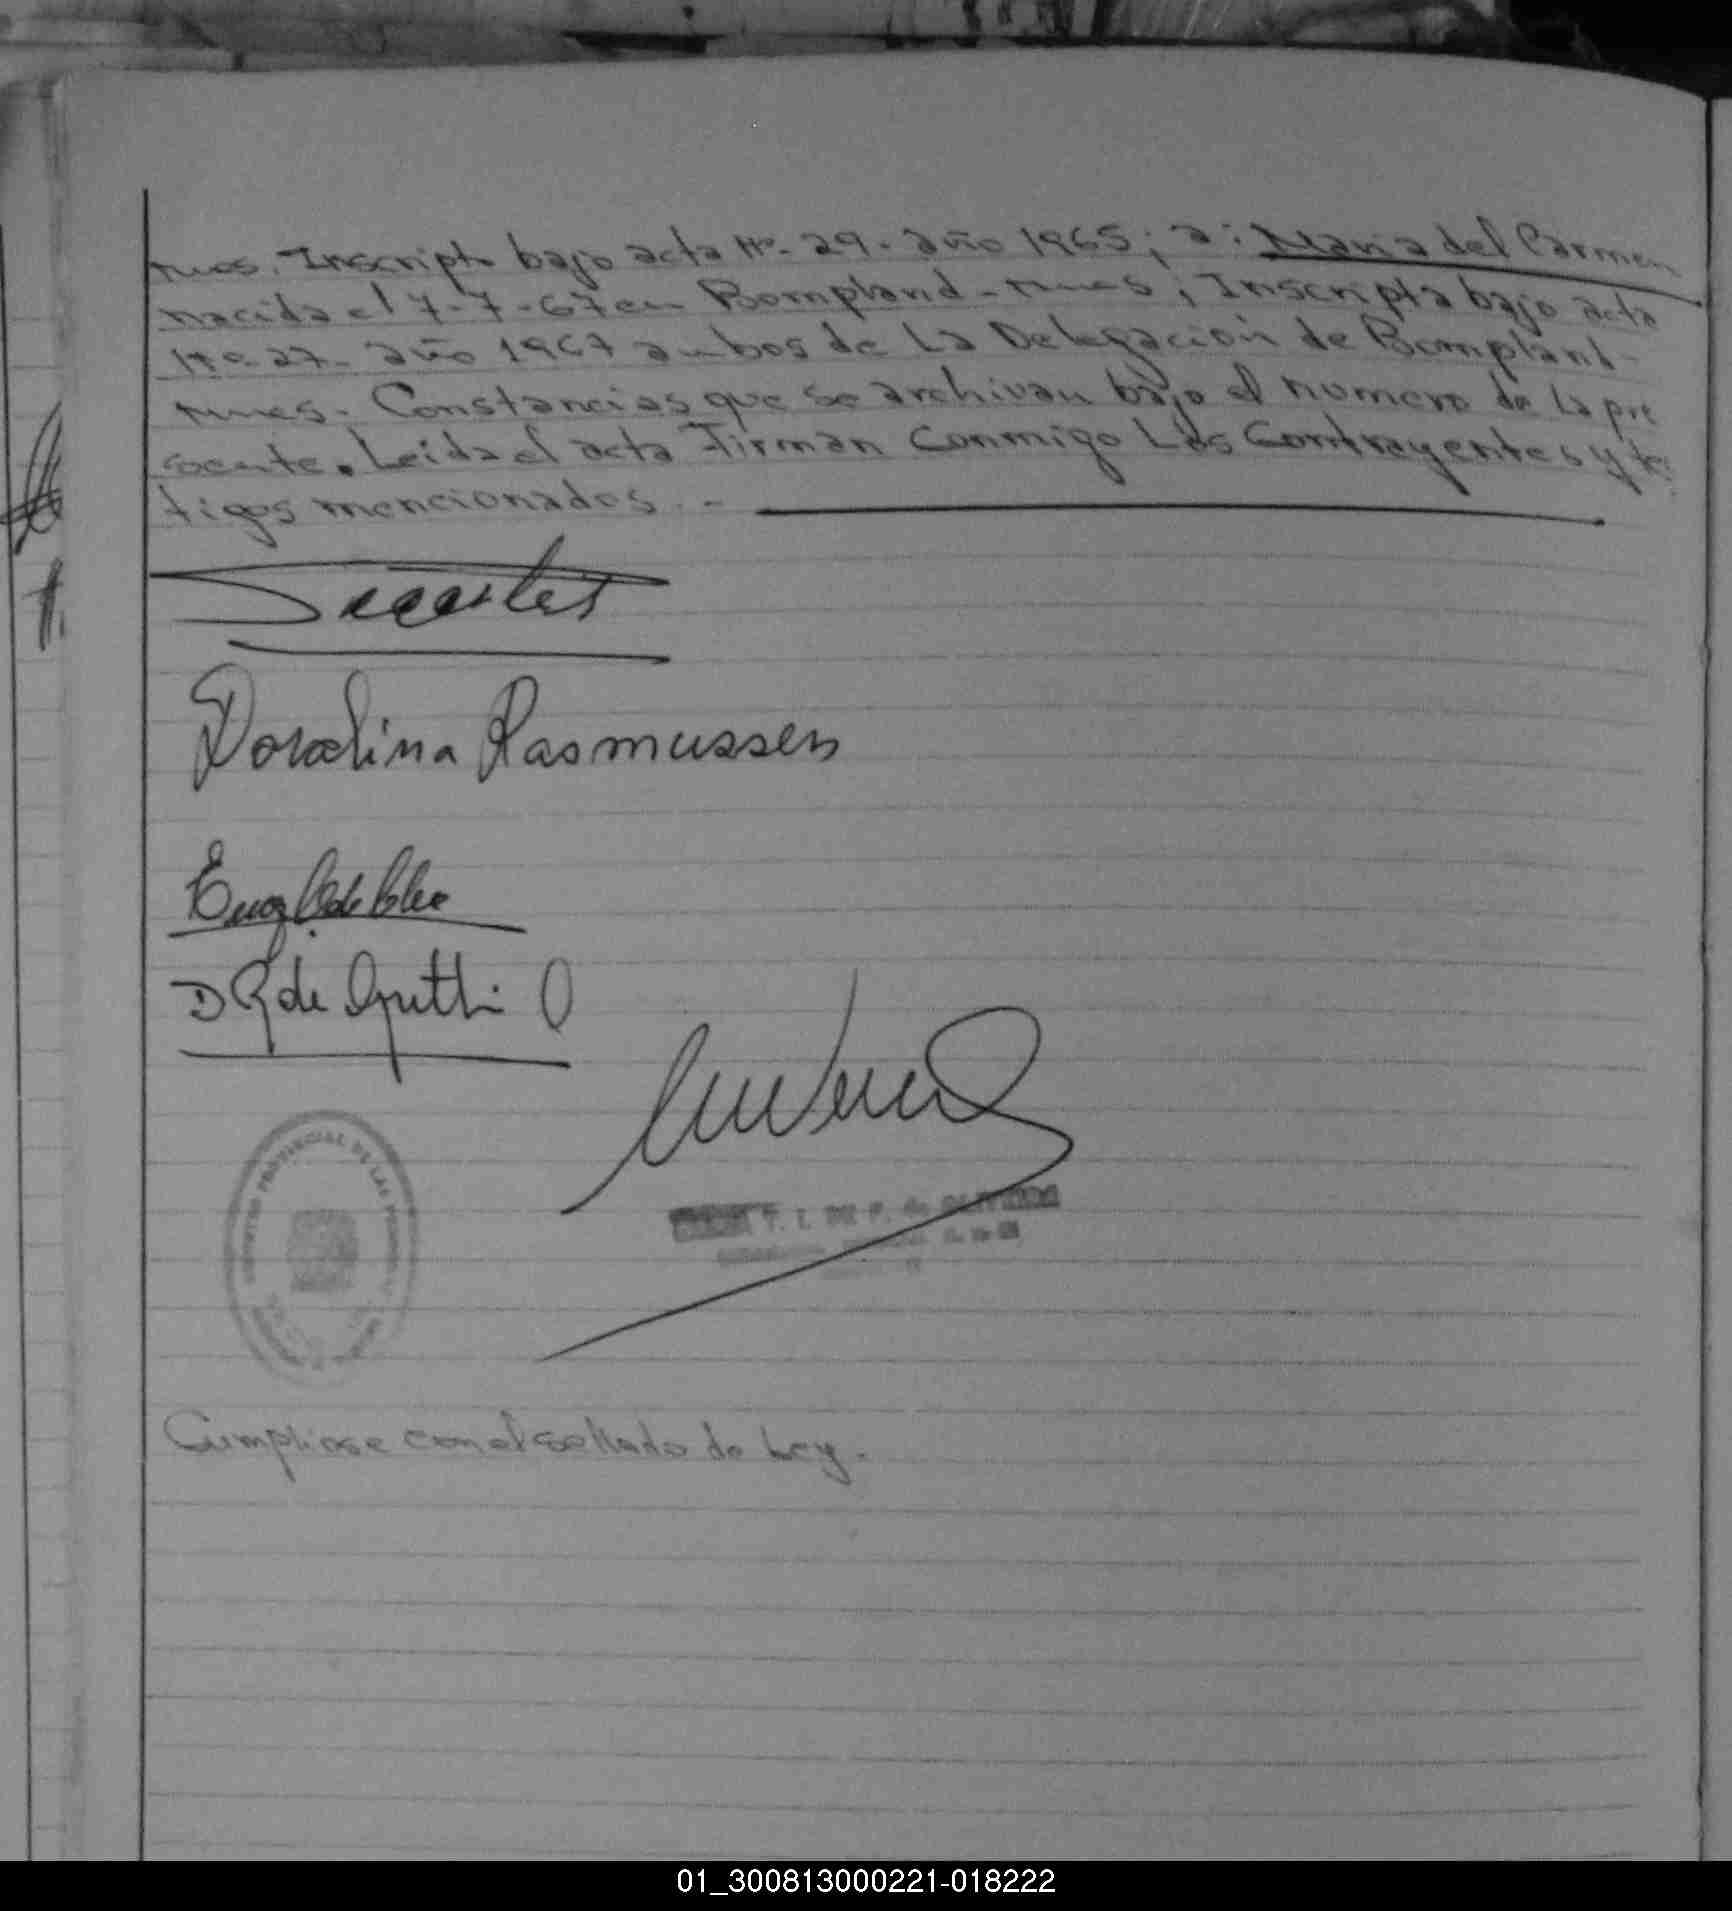 Mnes. Inscripto bajo acta Nº- 29- año 1965; a: Maria del Carmen
nacida el 7-7-67 en Bompland - Mnes; Inscripta bajo acta
Nº-27- año 1967 ambos de la Delegacion de Bompland-
Mnes. Constancias que se archivan bajo el numero de la pre
sente. Leida el acta Firman Conmigo Los Contrayentes y tes
tigos mencionados.-
Doralina Rasmussen
REGISTRO PROVINCIAL DE LAS PERSONAS
Cumpliose con el sellado de Ley.-
01_300813000221-018222